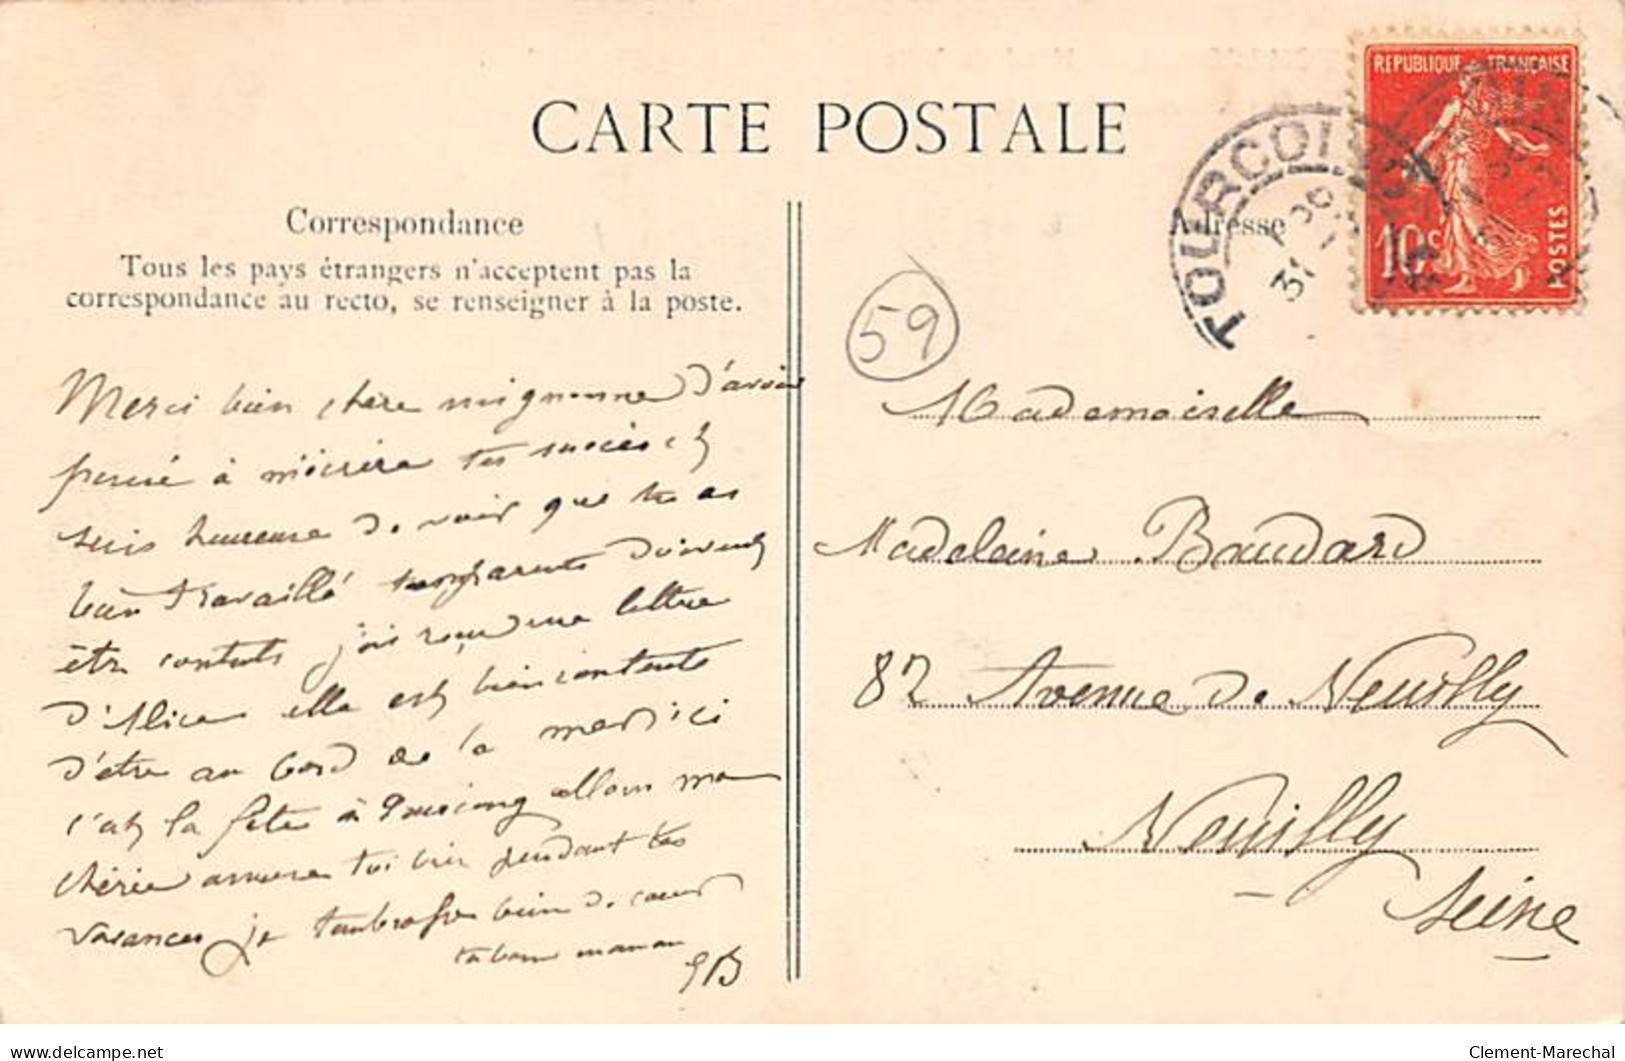 CARTE POSTALE
REPUBLIQUE FRANÇAISE
10c
POSTES
TOURCOING
31
Correspondance
Tous les pays étrangers n'acceptent pas la
correspondance au recto, se renseigner à la poste.
Adresse
59
Merci bien chère mignonne d'avoir
pensé à m'écrire tes succès et
suis heureuse de voir que tu as
bien travaillé tes parents doivent
être contents j'ai reçu une lettre
d'Alice elle est bien contente
d'être au bord de la
c'est la fête à Tourcoing allons ma
chérie amuse toi bien pendant tes
vacances je t'embrasse bien de coeur
ta bonne maman
GB
Mademoiselle
Madeleine Baudard
82 Avenue de Neuilly
Neuilly
Seine
delcampe.net
Clement-Marechal